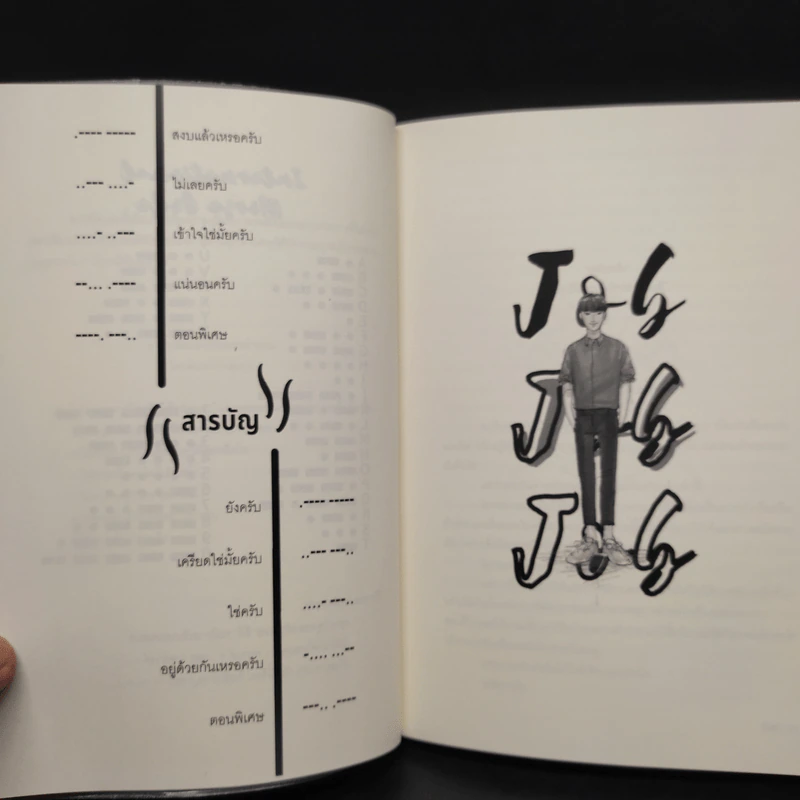 .---- ----- สงบแล้วเหรอครับ
..--- ....- ไม่เลยครับ
....- ..--- เข้าใจใช่มั้ยครับ
--... .---- แน่นอนครับ
----. ---.. ตอนพิเศษ
สารบัญ
ยังครับ .---- -----
เครียดใช่มั้ยครับ ..--- ---..
ใช่ครับ ....- ---..
อยู่ด้วยกันเหรอครับ -.... ...--
ตอนพิเศษ ---.. .----
Job
Job
Job